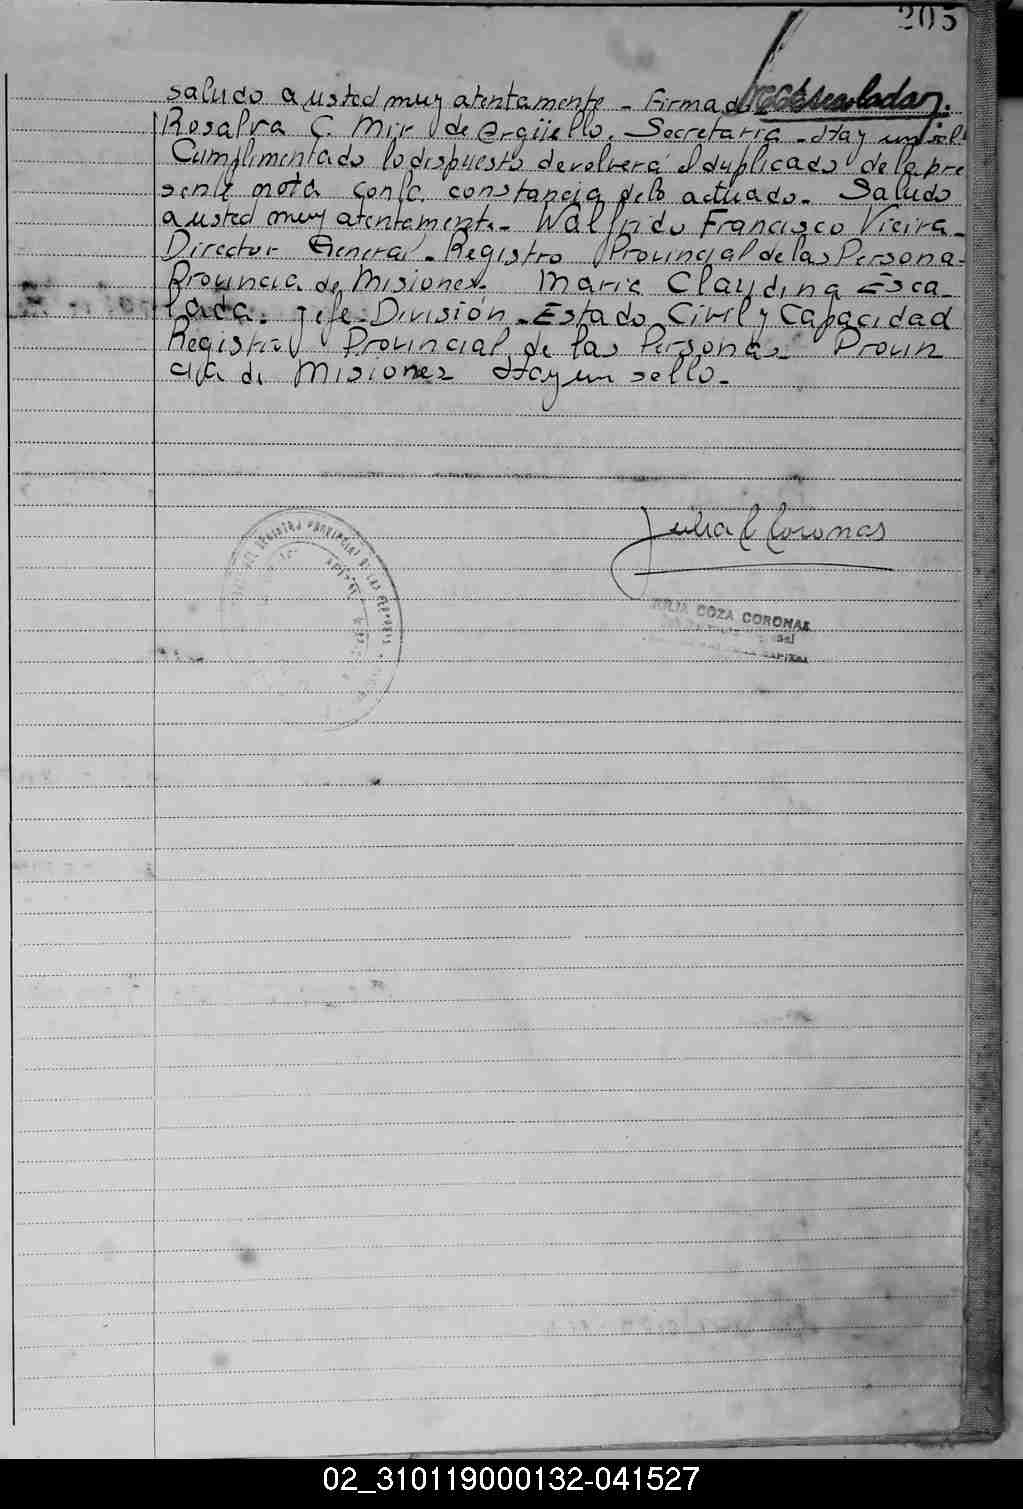 205
saludo a usted muy atentamente - Firmado
Rosalva C. Mir de Argüello. Secretaria - Hay un sel
Cumplimentado lo dispuesto devolverá el duplicado de la pre
sente nota con la constancia de lo actuado - Saludo
a usted muy atentamente - Walfrido Francisco Vieira -
Director General - Registro Provincial de las Persona -
Provincia de Misiones. Maria Claudina Esca -
lada. Jefe - División - Estado Civil y Capacidad
Registro Provincial de las Personas Provin
cia de Misiones Hay un sello. -
Julia C Coronas
JULIA COZA CORONAS
CAPITAL
REGISTRO PROVINCIAL DE LAS PERSONAS
02_310119000132-041527